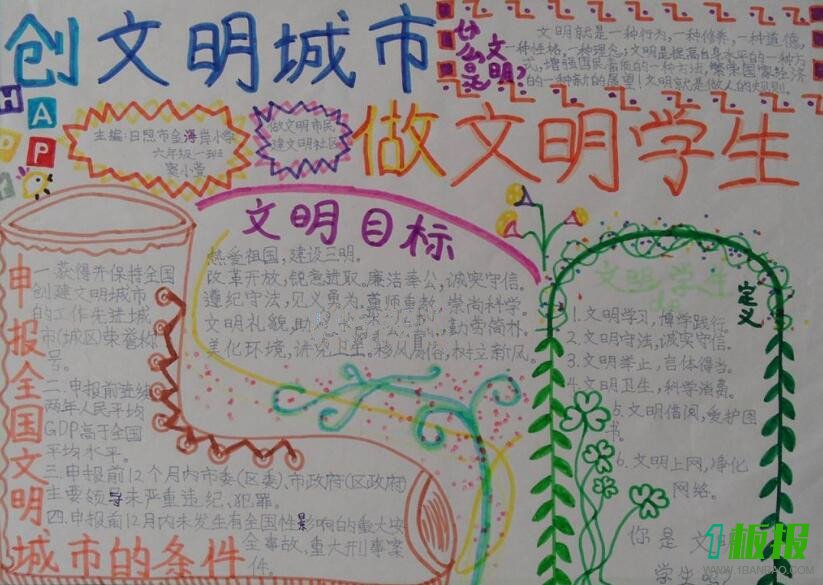 创文明城市
什么是文明?
文明就是一种行为,一种修养,一种道德,
一种性格,一种理念;文明是提高自身水平的一种方
式,增强国民素质的一种方法,繁荣国家经济
的一种新的展望!文明就是做人的规则。
HAPPY
主编:日照市金海岸小学
六年级一班
窦小莹
做文明市民
建文明社区
做文明学生
申报全国文明
城市的条件
一.获得并保持全国
创建文明城市
的工作先进城
市(城区)荣誉称
号。
二.申报前连续
两年人民平均
GDP高于全国
平均水平。
三.申报前12个月内市委(区委)、市政府(区政府)
主要领导未严重违纪、犯罪。
四.申报前12月内未发生有全国性影响的重大安
全事故,重大刑事案
件。
文明目标
热爱祖国,建设三明。
改革开放,锐意进取。廉洁奉公,诚实守信。
遵纪守法,见义勇为。尊师重教,崇尚科学
文明礼貌,助 勤劳简朴。
美化环境,讲究卫生。移风易俗,树立新风
文明学生
de
定义
1.文明学习,博学践行。
2.文明守法,诚实守信。
3.文明举止,言体得当。
4.文明卫生,科学消费。
5.文明借阅,爱护图
书。
6.文明上网,净化
网络。
你是文明
学生
1板报
WWW.1BANBAO.COM